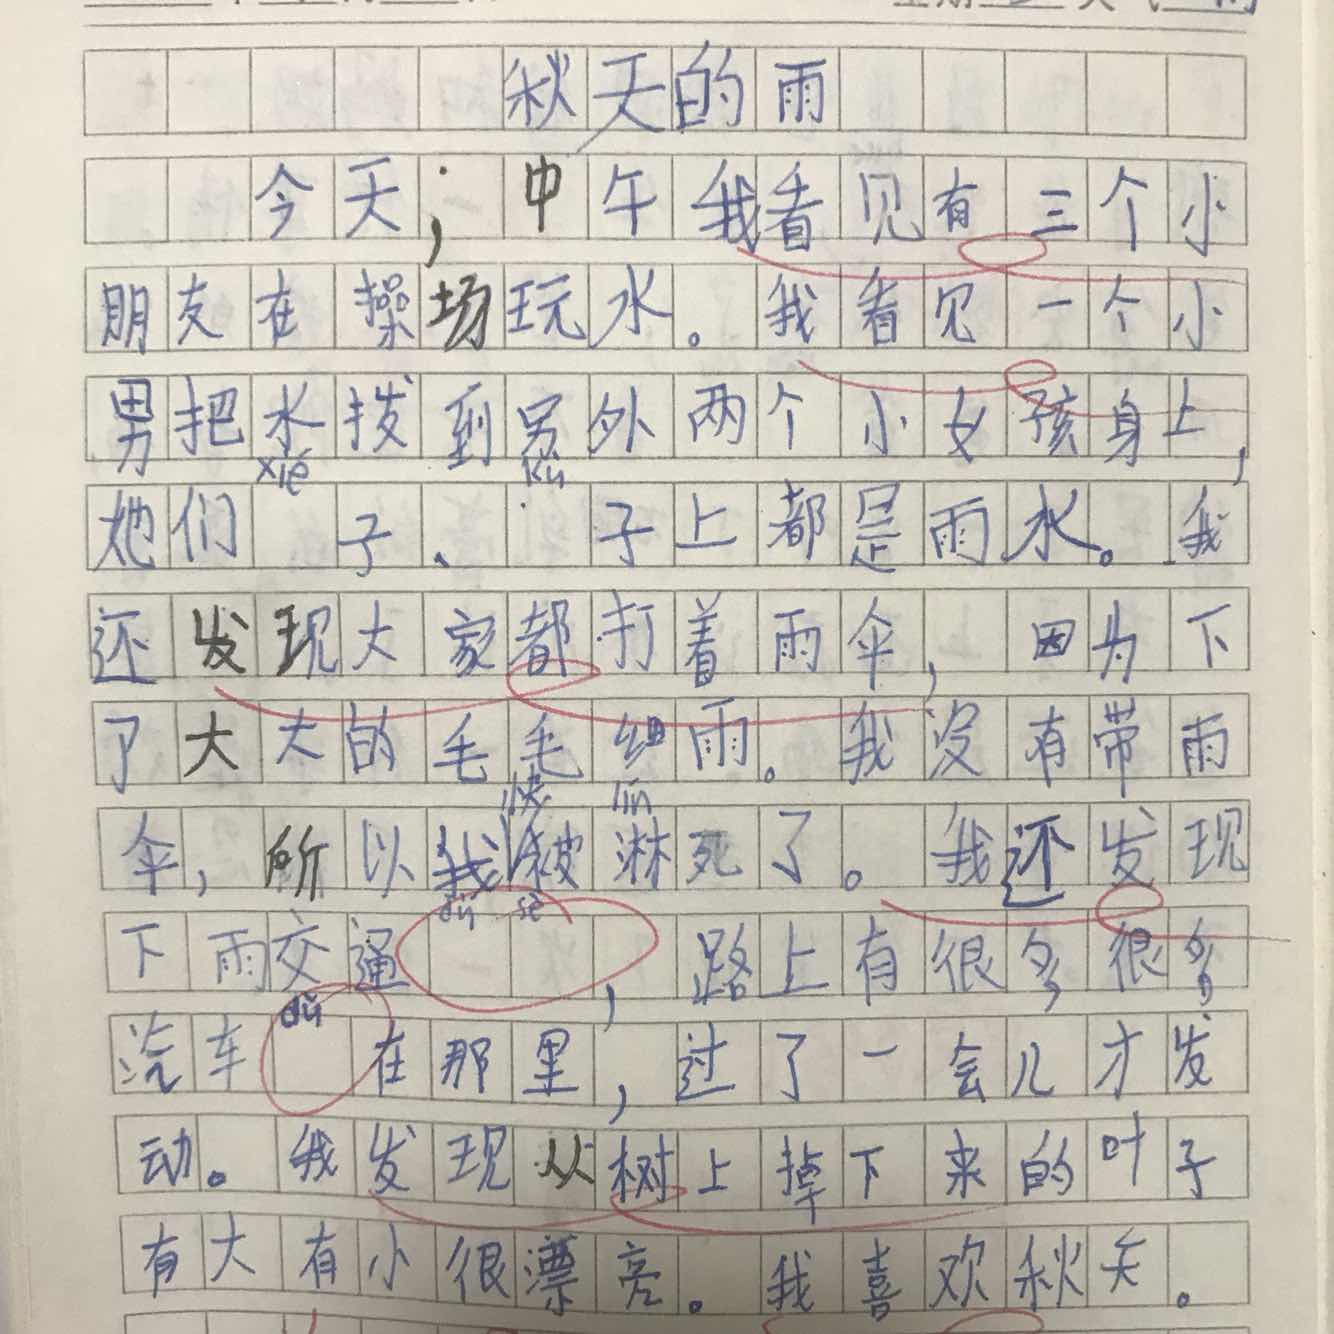 秋天的雨
今天，中午我看见有三个小
朋友在操场玩水。我看见一个小
男把水拨到另外两个小女孩身上，
xié kù
她们 子、 子上都是雨水。我
还发现大家都打着雨伞，因为下
了大大的毛毛细雨。我没有带雨
快 lín
伞，所以我被淋死了。我还发现
dǔ sè
下雨交通 ，路上有很多很多
dǔ
汽车 在那里，过了一会儿才发
动。我发现从树上掉下来的叶子
有大有小很漂亮。我喜欢秋天。